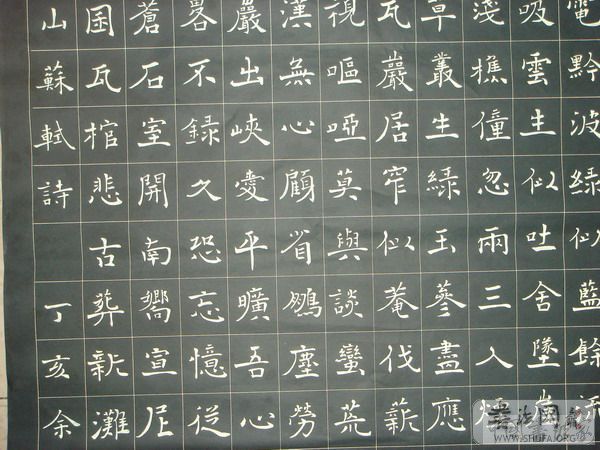 黔波綠似藍餘流
吸雲生似吐含墜
淺樵僮忽兩三人煙
草叢生綠玉篸盡應
瓦巖居窄似菴伐薪
視嘔啞莫與談蠻荒
漢無心顧雀鵪塵勞
巖出峽愛平曠吾心
畧不録久恐忘憶從
蒼石室開南嚮宣尼
瓦棺悲古葬新灘
山蘇軾詩 丁亥余
WWW.SHUFA.ORG